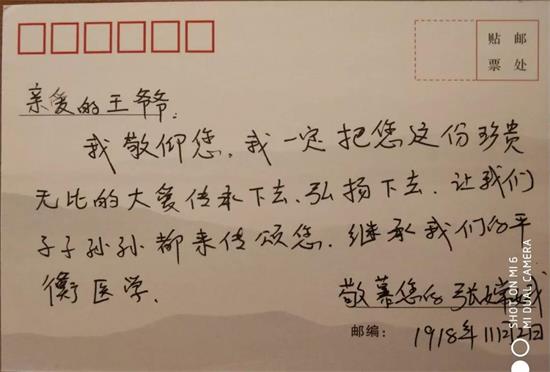 贴 邮
票 处
亲爱的王爷爷:
我敬仰您,我一定把您这份珍贵
无比的大爱传承下去、弘扬下去,让我们
子子孙孙都来传颂您,继承我们的平
衡医学.
敬慕您的张
邮编:
1918年11月21日
SHOT ON MI 6
MI DUAL CAMERA